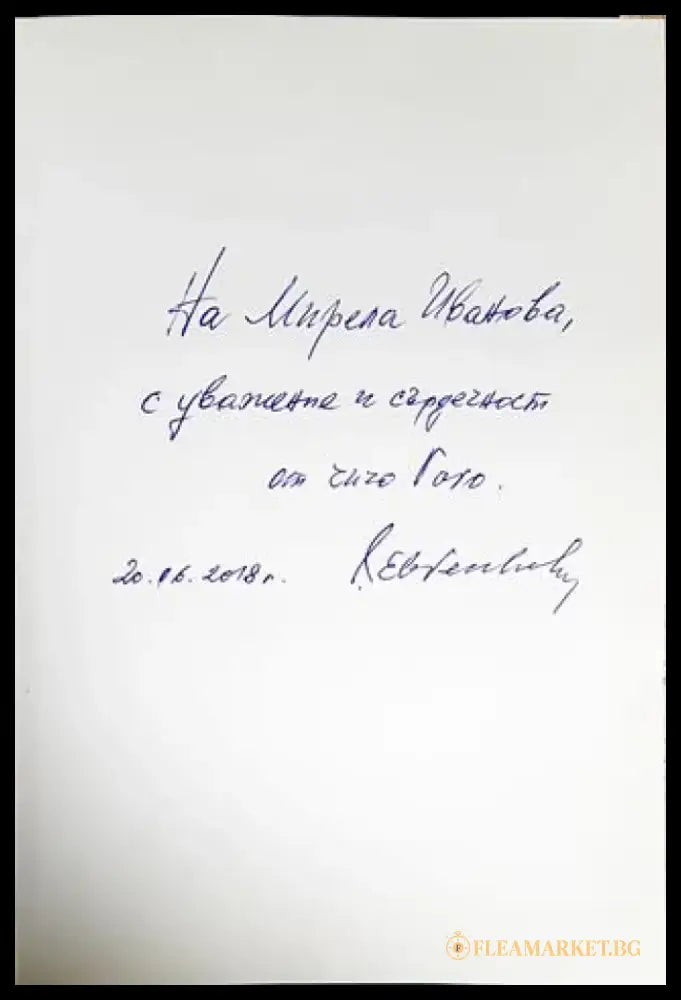 На Мирела Иванова,
с уважение и сърдечност
от чичо Гого.
20.06.2018 г.
FLEAMARKET.BG